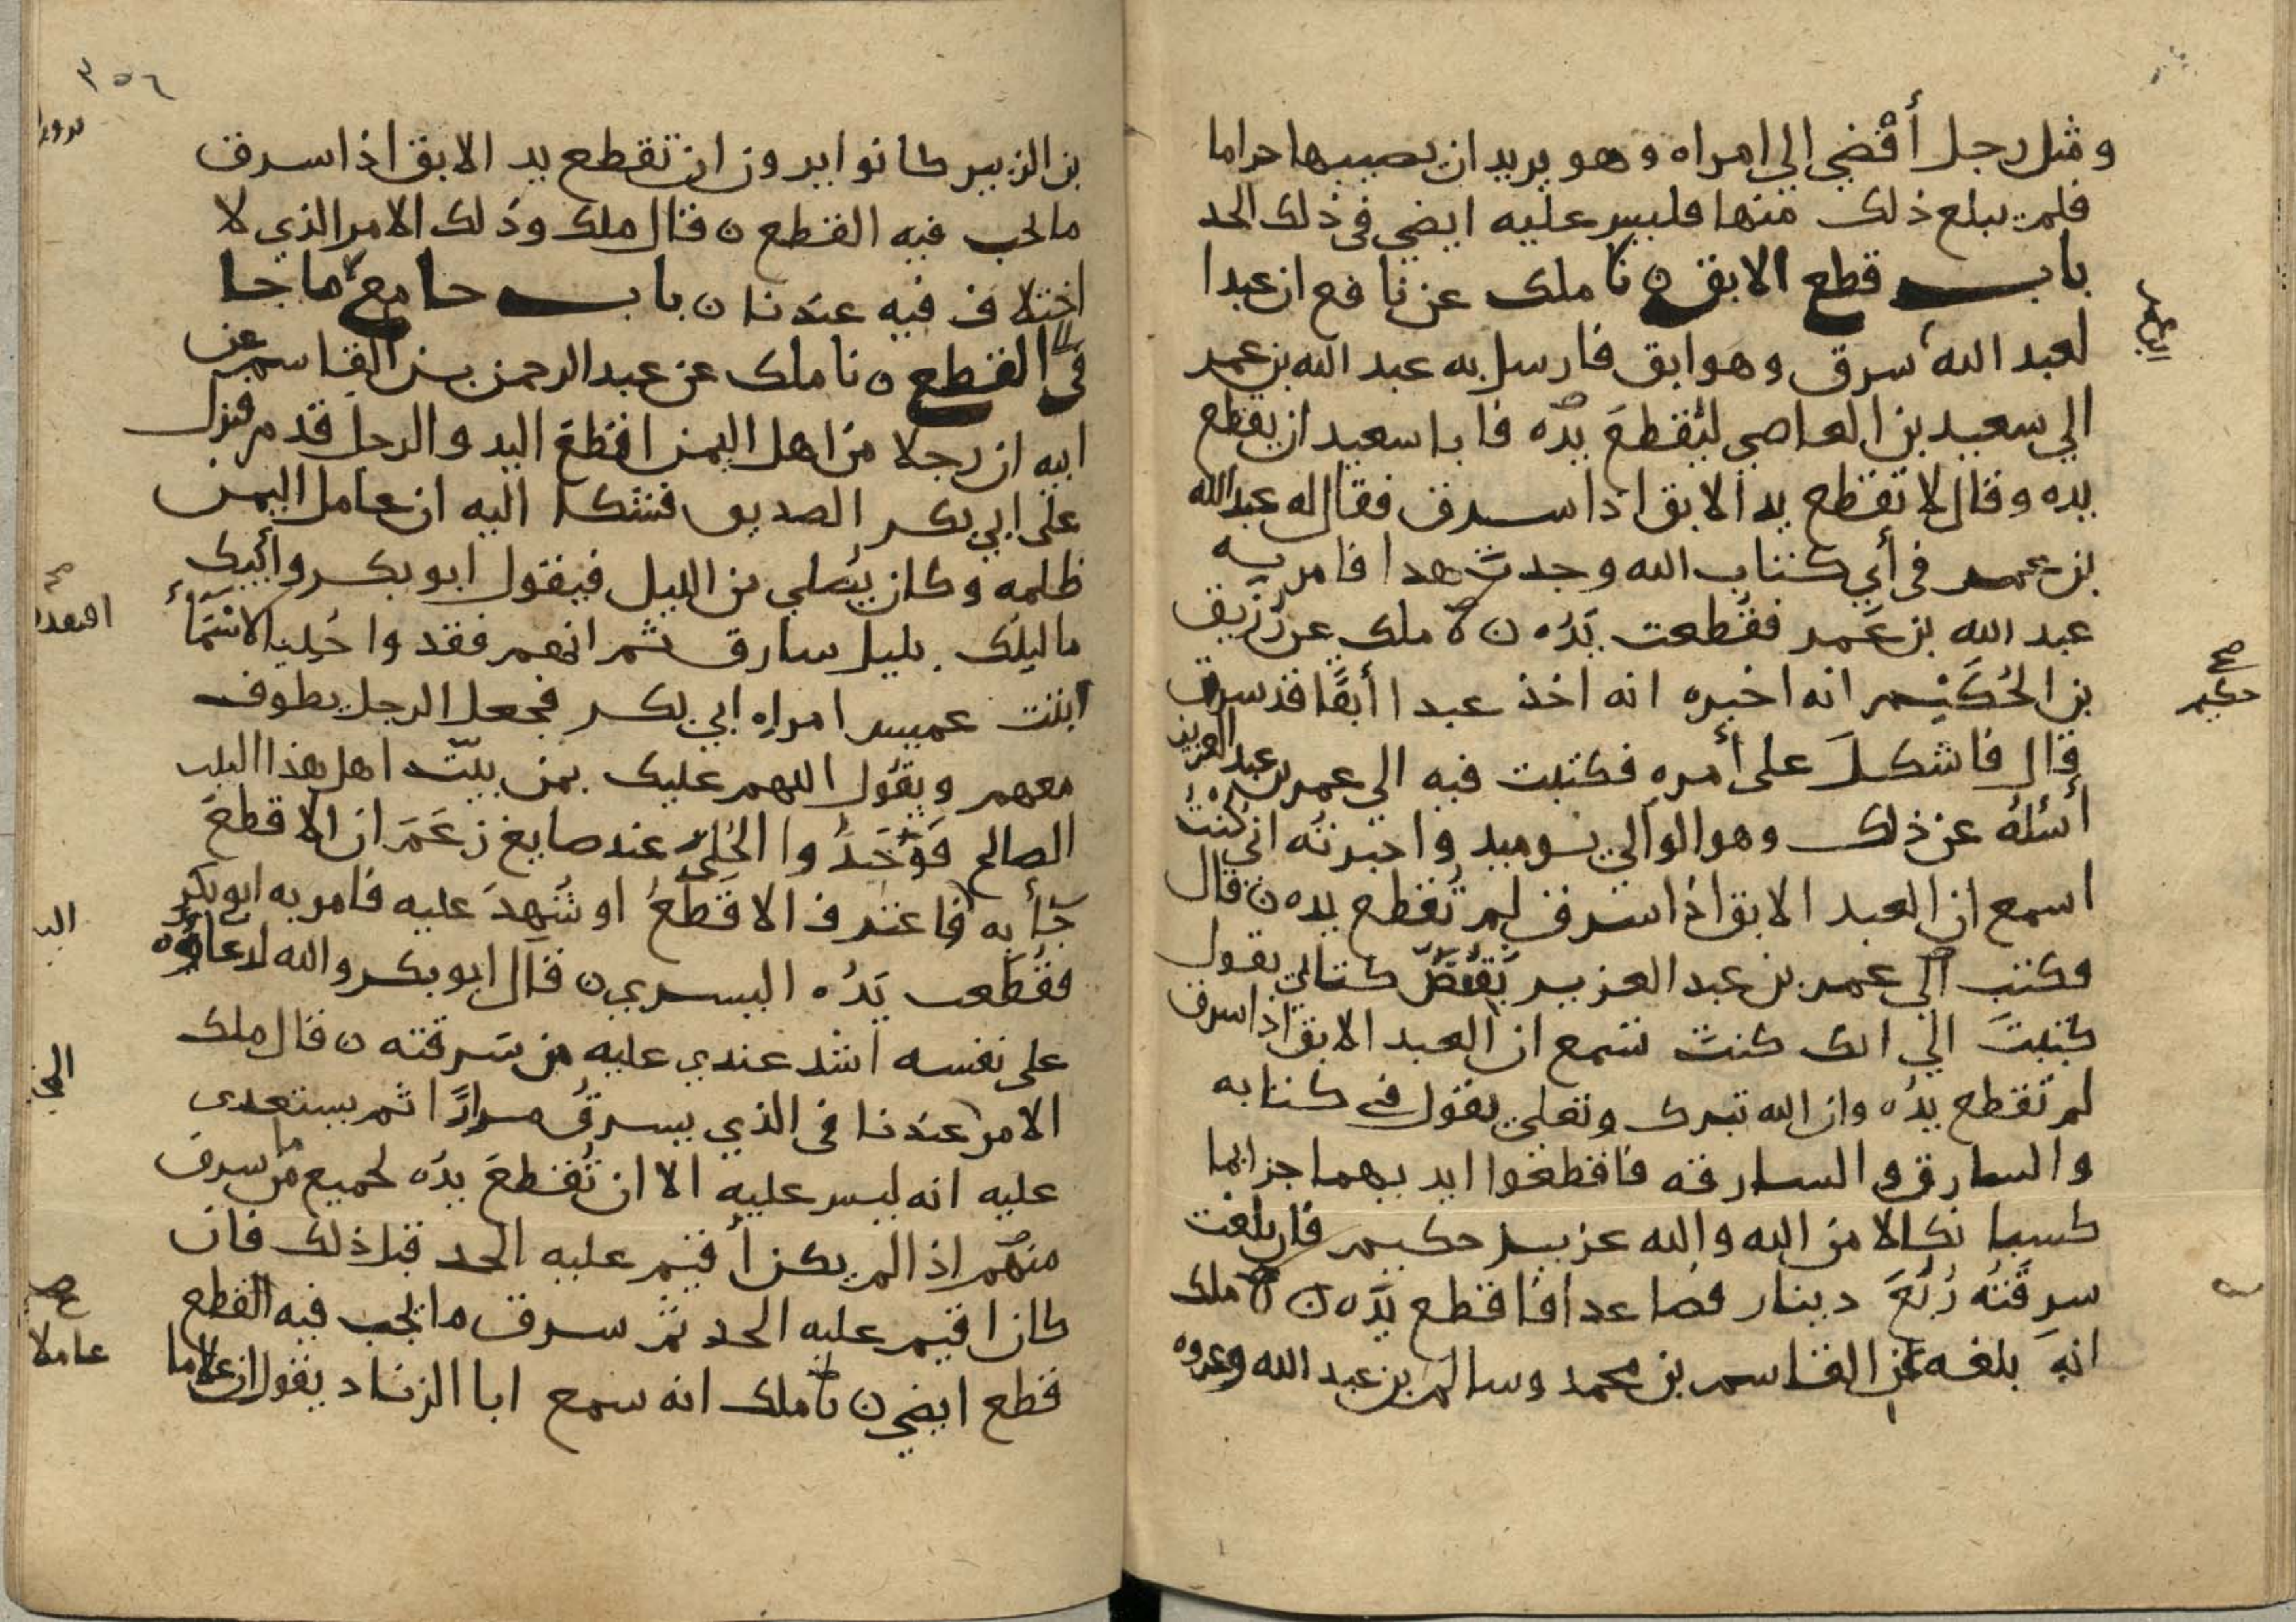 ومثل رجل أفضي الي امراه وهو يريد ان يصيبها حراما
فلم يبلغ ذلك منها فليس عليه ايضي في ذلك الحد
باب قطع الابق ن نا ملك عن نافع ان عبدا
لعبد الله سرق وهو ابق فارسل به عبد الله بن عمر
الي سعيد بن العاصي ليقطع يده فابا سعيد ان يقطع
يده وقال لا تقطع يد الابق اذا سرق فقال له عبد الله
بن عمر في أي كتاب الله وجدت هدا فامر به
عبد الله بن عمر فقطعت يده ن نا ملك عن زريق
بن الحكيم انه اخبره انه اخذ عبدا أبقا قد سرق
صح
حكيم
قال فاشكل على أمره فكتبت فيه الي عمر بن عبد العزيز
أسئله عن ذلك وهو الوالي يوميد واخبرته اني كنت
اسمع ان العبد الابق اذا سرق لم تقطع يده ن قال
فكتب الي عمر بن عبد العزيز نقيض كتابي يقول
كتبت الي انك كنت تسمع ان العبد الابق اذا سرق
لم تقطع يده وان الله تبرك وتعلي يقول في كتابه
والسارق والسارقه فاقطعوا ايديهما جزا بما
كسبا نكالا من الله والله عزيز حكيم فان بلغت
سرقته ربع دينار فصاعدا فاقطع يده ن نا ملك
انه بلغه عن القاسم بن محمد وسالم بن عبد الله وعروه
٣٥٦
بن الزبير كانوا يرون ان تقطع يد الابق اذا سرق
ما يجب فيه القطع ن قال ملك وذلك الامر الذي لا
اختلاف فيه عندنا ن باب جامع ما جا
في القطع ن نا ملك عن عبد الرحمن بن القاسم عن
ابيه ان رجلا من اهل اليمن اقطع اليد والرجل قدم فنزل
على ابي بكر الصديق فشكا اليه ان عامل اليمن
ظلمه وكان يصلي من الليل فيقول ابو بكر وأبيك
ما ليلك بليل سارق ثم انهم فقدوا حليا لاسمأ
ابنت عميس امراه ابي بكر فجعل الرجل يطوف
معهم ويقول اللهم عليك بمن بيت اهل هذا البيت
الصالح فوجدوا الحلي عند صايغ زعم ان الاقطع
جأ به فاعترف الاقطع او شهد عليه فامر به ابو بكر
فقطعت يده اليسري ن قال ابو بكر والله لدعاوه
على نفسه اشد عندي عليه من سرقته ن قال ملك
الامر عندنا في الذي يسرق مرارا ثم يستعدى
عليه انه ليس عليه الا ان تقطع يده لجميع من سرق
منهم اذا لم يكن أقيم عليه الحد قبل ذلك فان
كان اقيم عليه الحد ثم سرق ما يجب فيه القطع
قطع ايضي ن نا ملك انه سمع ابا الزناد يقول ان عاملا
صح
عاملا